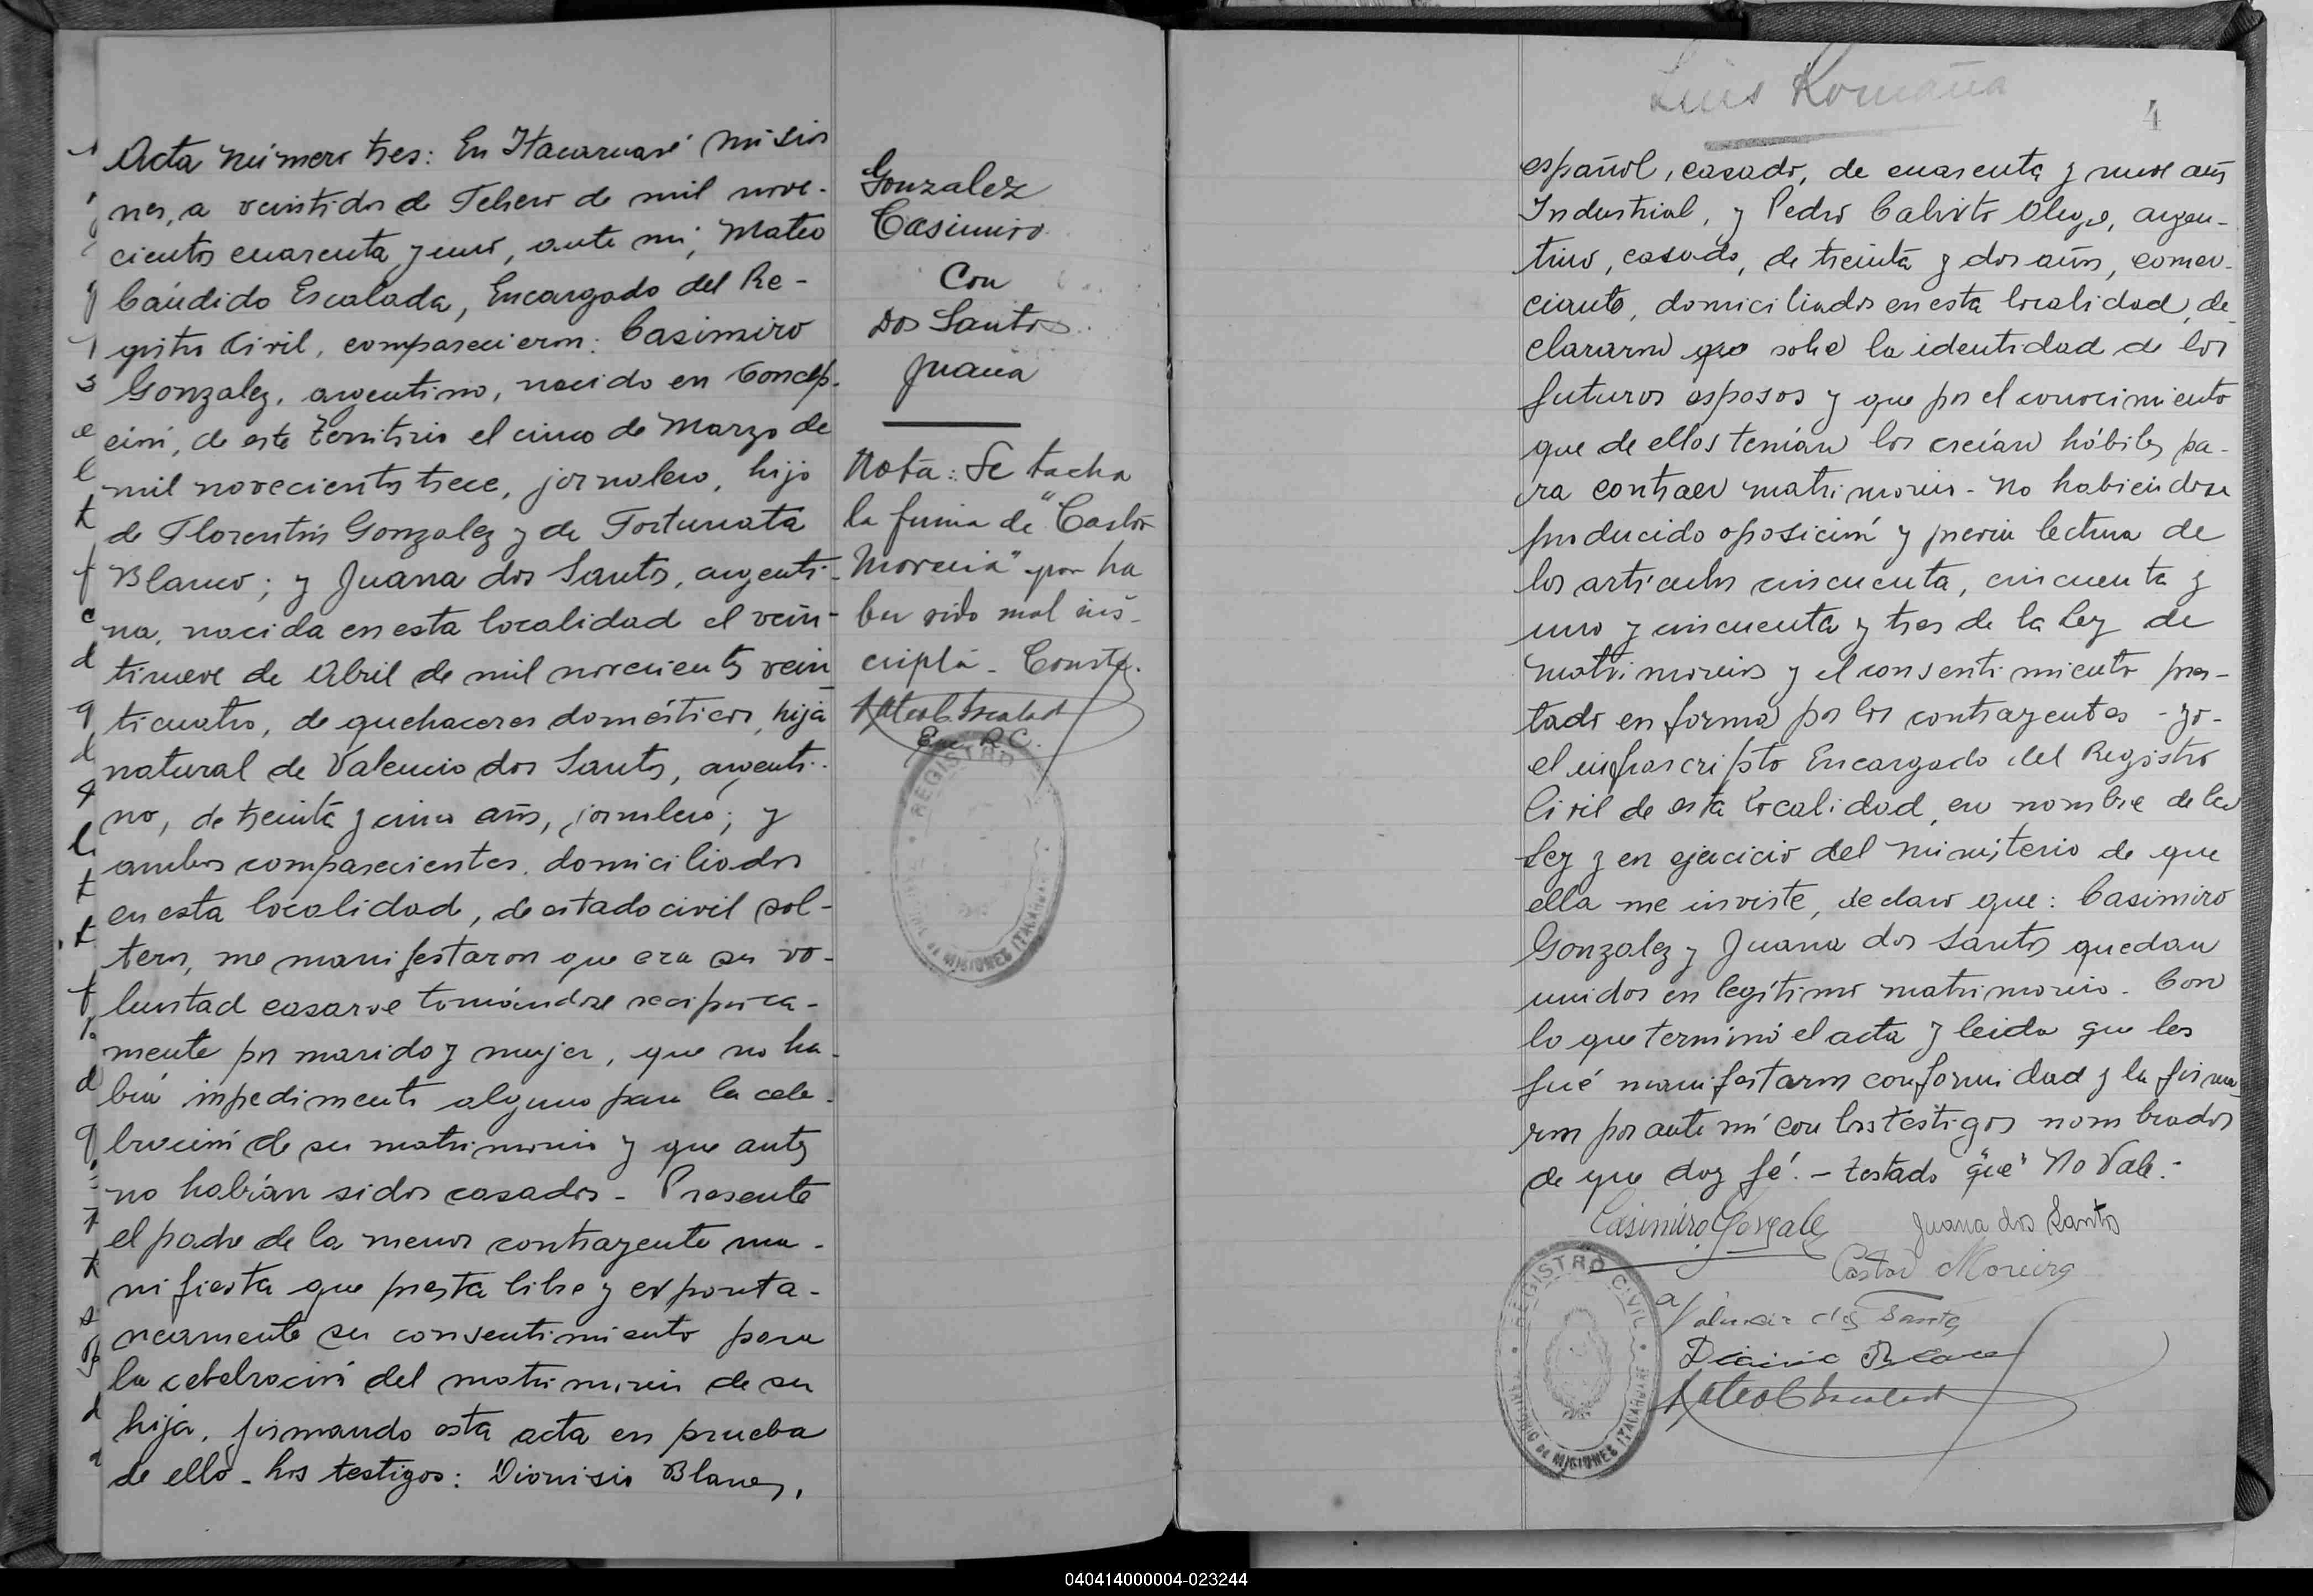 Acta número tres: En Itacaruaré Misio
nes, a veintidos de Febrero de mil nove-
cientos cuarenta y uno, ante mi, Mateo
Cándido Escalada, Encargado del Re-
gistro Civil, comparecieron: Casimiro
Gonzalez, argentino, nacido en Concep-
ción, de este Territorio el cinco de Marzo de
mil novecientos trece, jornalero, hijo
de Florentín Gonzalez y de Fortunata
Blanco; y Juana dos Santos, argenti-
na, nacida en esta localidad el vein-
tinueve de Abril de mil novecientos vein
ticuatro, de quehaceres domésticos, hija
natural de Valencio dos Santos, argenti-
no, de treinta y cinco años, jornalero; y
ambos comparecientes domiciliados
en esta localidad, de estado civil sol-
teros, me manifestaron que era su vo-
luntad casarse tomándose reciproca-
mente por marido y mujer, que no ha-
bía impedimento alguno para la cele-
bración de su matrimonio y que antes
no habían sidos casados - Presente
el padre de la menor contrayente ma-
nifiesta que presta libre y exponta-
neamente su consentimiento para
la celebración del matrimonio de su
hija, firmando esta acta en prueba
de ello - los testigos: Dionisio Blanco,
Gonzalez
Casimiro
Con
Dos Santos
Juana
Nota: Se tacha
la firma de "Castor
Moreira" por ha
ber sido mal ins-
cripta - Conste.
Enc. R.C.
REGISTRO CIVIL
MISIONES ITACARUARE
Luis Romaña
4
español, casado, de cuarenta y nueve años
Industrial, y Pedro Calixto argen-
tino, casado, de treinta y dos años, comer-
ciante, domiciliados en esta localidad, de-
clararon que sobre la identidad de los
futuros esposos y que por el conocimiento
que de ellos tenían los creían hábiles pa-
ra contraer matrimonio - No habiendose
producido oposición y previa lectura de
los articulos cincuenta, cincuenta y
uno y cincuenta y tres de la Ley de
Matrimonios y el consentimiento pres-
tado en forma por los contrayentes - yo -
el infrascripto Encargado del Registro
Civil de esta localidad, en nombre de la
Ley y en ejercicio del ministerio de que
ella me inviste, declaro que: Casimiro
Gonzalez y Juana dos Santos quedan
unidos en legítimo matrimonio. Con
lo que terminó el acta y leida que les
fué manifestaron conformidad y la firma
ron por ante mí con los testigos nombrados
de que doy fé. - Testado "que" No Vale. -
Casimiro Gonzalez Juana dos Santo
Castor Moreira
Valencio dos Santos
REGISTRO CIVIL
TERRITORIO DE MISIONES ITACARUARE
040414000004-023244